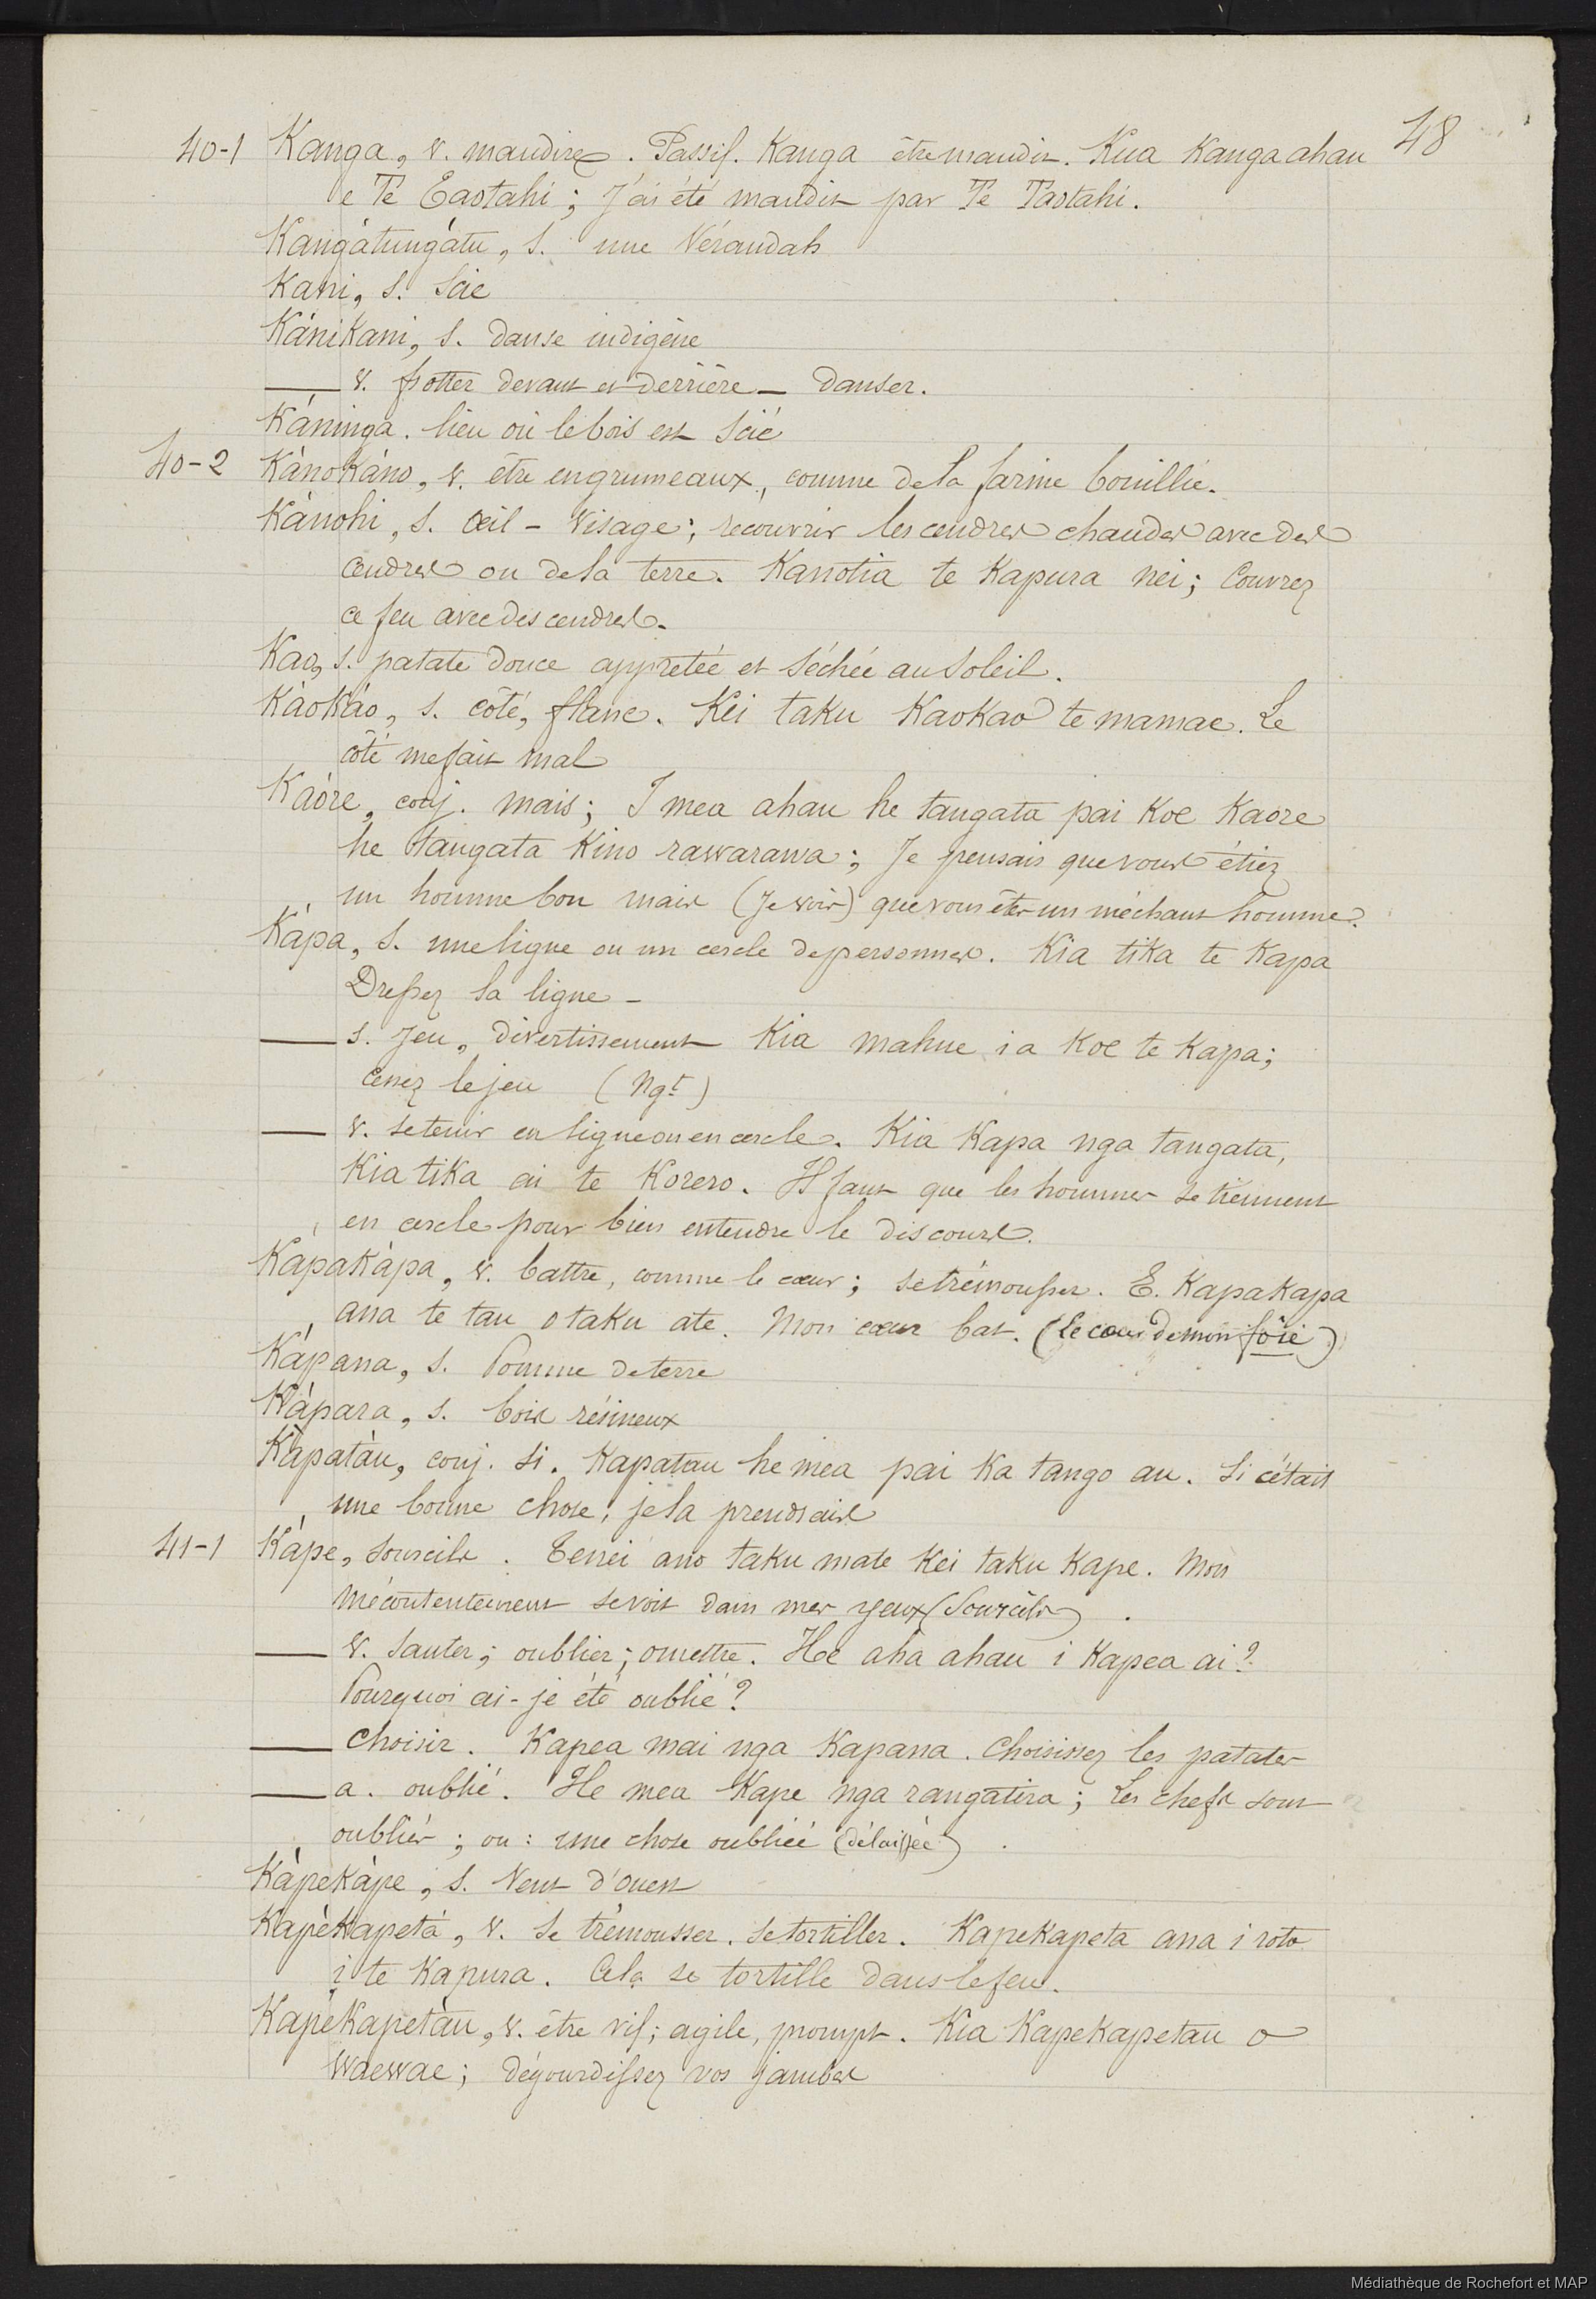 48
40-1 Kanga, v. maudire. Passif. Kanga être maudit. Kua Kanga ahau
e Te Taotahi ; J'ai été maudit par Te Taotahi.
Kangátungátu, s. une Vérandah
Kani, s. Scie
Kánikani, s. danse indigène
— v. frotter devant et derrière — danser.
Káninga. lieu où le bois est scié
40-2 Kànokáno, v. être en grumeaux, comme de la farine bouillie.
Kànohi, s. œil - visage ; recouvrir les cendres chaudes avec des
cendres ou de la terre. Kanotia te Kapura nei ; Couvrez
ce feu avec des cendres.
Kao, s. patate douce appretée et séchée au soleil.
Kàokáo, s. côté, flanc. Kei taku Kaokao te mamae. Le
côté me fait mal
Kaòre, conj. mais ; I mea ahau he tangata pai Koe Kaore
he tangata Kino rawarawa ; Je pensais que vous étiez
un homme bon mais (je vois) que vous êtes un méchant homme.
Kápa, s. une ligne ou un cercle de personnes. Kia tika te Kapa
Dressez la ligne -
— s. Jeu, divertissement Kia mahue i a Koe te Kapa ;
cessez le jeu (Ngt)
— v. se tenir en ligne ou en cercle. Kia Kapa nga tangata,
Kia tika ai te Korero. Il faut que les hommes se tiennent
en cercle pour bien entendre le discours.
Kápakàpa, v. battre, comme le cœur ; se trémousser. E. Kapakapa
ana te tau o taku ate. Mon cœur bat. (le cœur de mon foie)
Kápana, s. Pomme de terre
Kàpara, s. bois résineux
Kàpatàu, conj. si. Kapatau he mea pai Ka tango au. Si c'était
une bonne chose, je la prendrais
41-1 Kápe, sourcils. Tenei ano taku mate Kei taku Kape. Mon
mécontentement se voit dans mes yeux (Sourcils).
— v. sauter ; oublier ; omettre. He aha ahau i Kapea ai ?
Pourquoi ai-je été oublié ?
— Choisir. Kapea mai nga Kapana. Choisissez les patates
— a. oublié. He mea Kape nga rangatira ; Les chefs sont
oubliés ; ou : une chose oubliée (délaissée).
Kàpekàpe, s. Vent d'ouest
Kapèkapetà, v. se trémousser. se tortiller. Kapekapeta ana i roto
i te Kapura. Cela se tortille dans le feu.
Kapèkapetàu, v. être vif ; agile, prompt. Kia Kapekapetau o
waewae ; dégourdissez vos jambes
Médiathèque de Rochefort et MAP